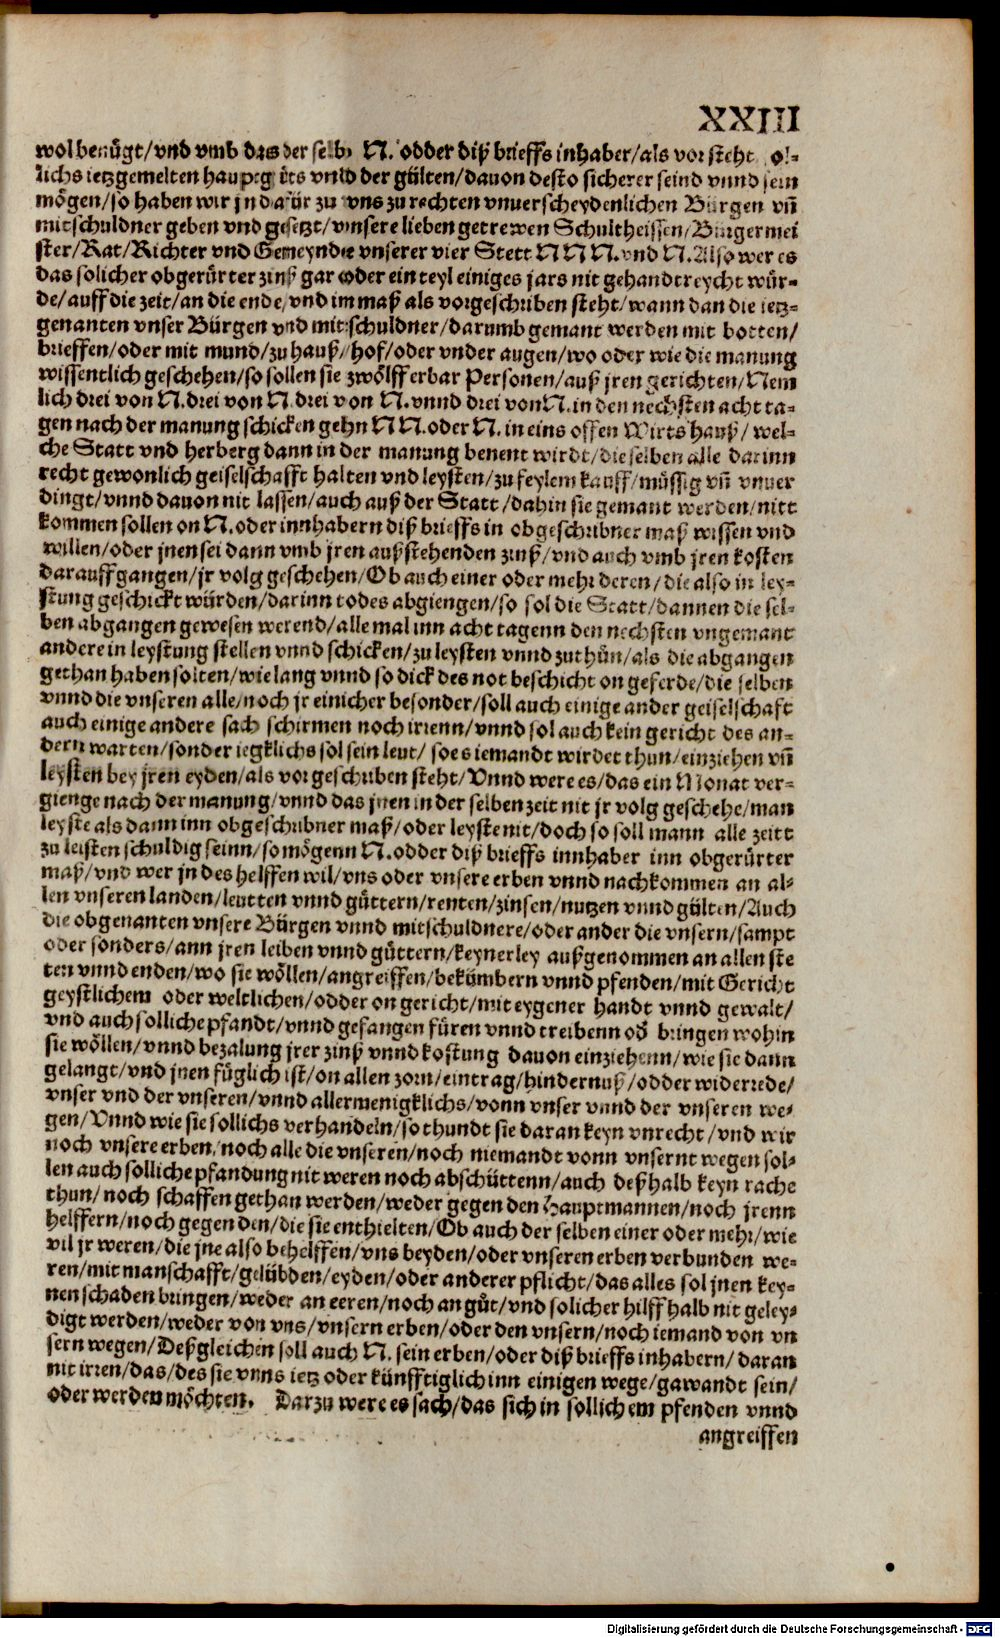 XXIII
wol benügt/vnd vmb das der selb N. odder diß brieffs inhaber/als vor steht
lichs ietzgemelten haupt güts vnnd der gülten/dauon desto sicherer seind vnnd sein
mögen/so haben wir jn dafür zu vns zu rechten vnuerscheydenlichen Bürgen vn̄
mitschuldner geben vnd gesetzt/vnsere lieben getrewen Schultheissen/Bürgermei
ster/Rat/Richter vnd Gemeynde vnserer vier Stett N N N. vnd N. Also wer es
das solicher obgerürter zinß gar oder ein teyl einiges jars nit gehandtreycht wür-
de/auff die zeit/an die ende/vnd im maß als vorgeschriben steht/wann dan die ietz-
genanten vnser Bürgen vnd mitschuldner/darumb gemant werden mit botten/
brieffen/oder mit mund/zu hauß/hof/oder vnder augen/wo oder wie die manung
wissentlich geschehen/so sollen sie zwölff erbar Personen/auß jren gerichten/Nem
lich drei von N. drei von N. drei von N. vnnd drei von N. in den nechsten acht ta-
gen nach der manung schicken gehn N N. oder N. in eins offen Wirts hauß/wel-
che Statt vnd herberg dann in der manung benent wirdt/die selben alle darinn
recht gewonlich geiselschafft halten vnd leysten/zu feylem kauff/müssig vn̄ vnuer
dingt/vnnd dauon nit lassen/auch auß der Statt/dahin sie gemant werden/nitt
kommen sollen on N. oder innhabern diß brieffs in obgeschribner maß wissen vnd
willen/oder jnen sei dann vmb jren außstehenden zinß/vnd auch vmb jren kosten
darauff gangen/jr volg geschehen/Ob auch einer oder mehr deren/die also in ley-
stung geschickt würden/darinn todes abgiengen/so sol die Statt/dannen die sel-
ben abgangen gewesen werend/alle mal inn acht tagenn den nechsten vngemant
andere in leystung stellen vnnd schicken/zu leysten vnnd zuthün/als die abgangen
gethan haben solten/wie lang vnnd so dick des not beschicht on geferde/die selben
vnnd die vnseren alle/noch jr einicher besonder/soll auch einige ander geiselschaft
auch einige andere sach schirmen noch irrenn/vnnd sol auch kein gericht des an-
dern warten/sonder iegklichs sol sein leut/so es iemandt wirdet thun/einziehen vn̄
leysten bey jren eyden/als vorgeschriben steht/Vnnd were es/das ein Monat ver-
gienge nach der manung/vnnd das jnen in der selben zeit nit jr volg geschehe/man
leyste als dann inn obgeschribner maß/oder leyste nit/doch so soll mann alle zeitt
zu leisten schuldig seinn/so mögenn N. odder diß brieffs innhaber inn obgerürter
maß/vnd wer jn des helffen wil/vns oder vnsere erben vnnd nachkommen an al-
len vnseren landen/leutten vnnd güttern/renten/zinsen/nutzen vnnd gülten/Auch
die obgenanten vnsere Bürgen vnnd mitschuldnere/oder ander die vnsern/sampt
oder sonders/ann jren leiben vnnd güttern/keynerley außgenommen an allen ste
ten vnnd enden/wo sie wöllen/angreiffen/bekümbern vnnd pfenden/mit Gericht
geystlichem oder weltlichen/odder on gericht/mit eygener handt vnnd gewalt/
vnd auch solliche pfandt/vnnd gefangen füren vnnd treibenn od̄ bringen wohin
sie wöllen/vnnd bezalung jrer zinß vnnd kostung dauon einziehenn/wie sie dann
gelangt/vnd jnen füglich ist/on allen zorn/eintrag/hindernuß/odder widerrede/
vnser vnd der vnseren/vnnd allermenigklichs/vonn vnser vnnd der vnseren we-
gen/Vnnd wie sie sollichs verhandeln/so thundt sie daran keyn vnrecht/vnd wir
noch vnsere erben/noch alle die vnseren/noch niemandt vonn vnsernt wegen sol-
len auch solliche pfandung nit weren noch abschüttenn/auch deßhalb keyn rache
thun/noch schaffen gethan werden/weder gegen den Hauptmannen/noch jrenn
helffern/noch gegen den/die sie enthielten/Ob auch der selben einer oder mehr/wie
vil jr weren/die jne also behelffen/vns beyden/oder vnseren erben verbunden we-
ren/mit manschafft/gelübden/eyden/oder anderer pflicht/das alles sol jnen key-
nen schaden bringen/weder an eeren/noch an güt/vnd solicher hilff halb nit geley-
digt werden/weder von vns/vnsern erben/oder den vnsern/noch iemand von vn
sern wegen/Deßgleichen soll auch N. sein erben/oder diß brieffs inhabern/daran
nit irren/das/des sie vnns ietz oder künfftiglich inn einigen wege/gewandt sein/
oder werden möchten. Darzu were es sach/das sich in sollichem pfenden vnnd
angreiffen
Digitalisierung gefördert durch die Deutsche Forschungsgemeinschaft - DFG